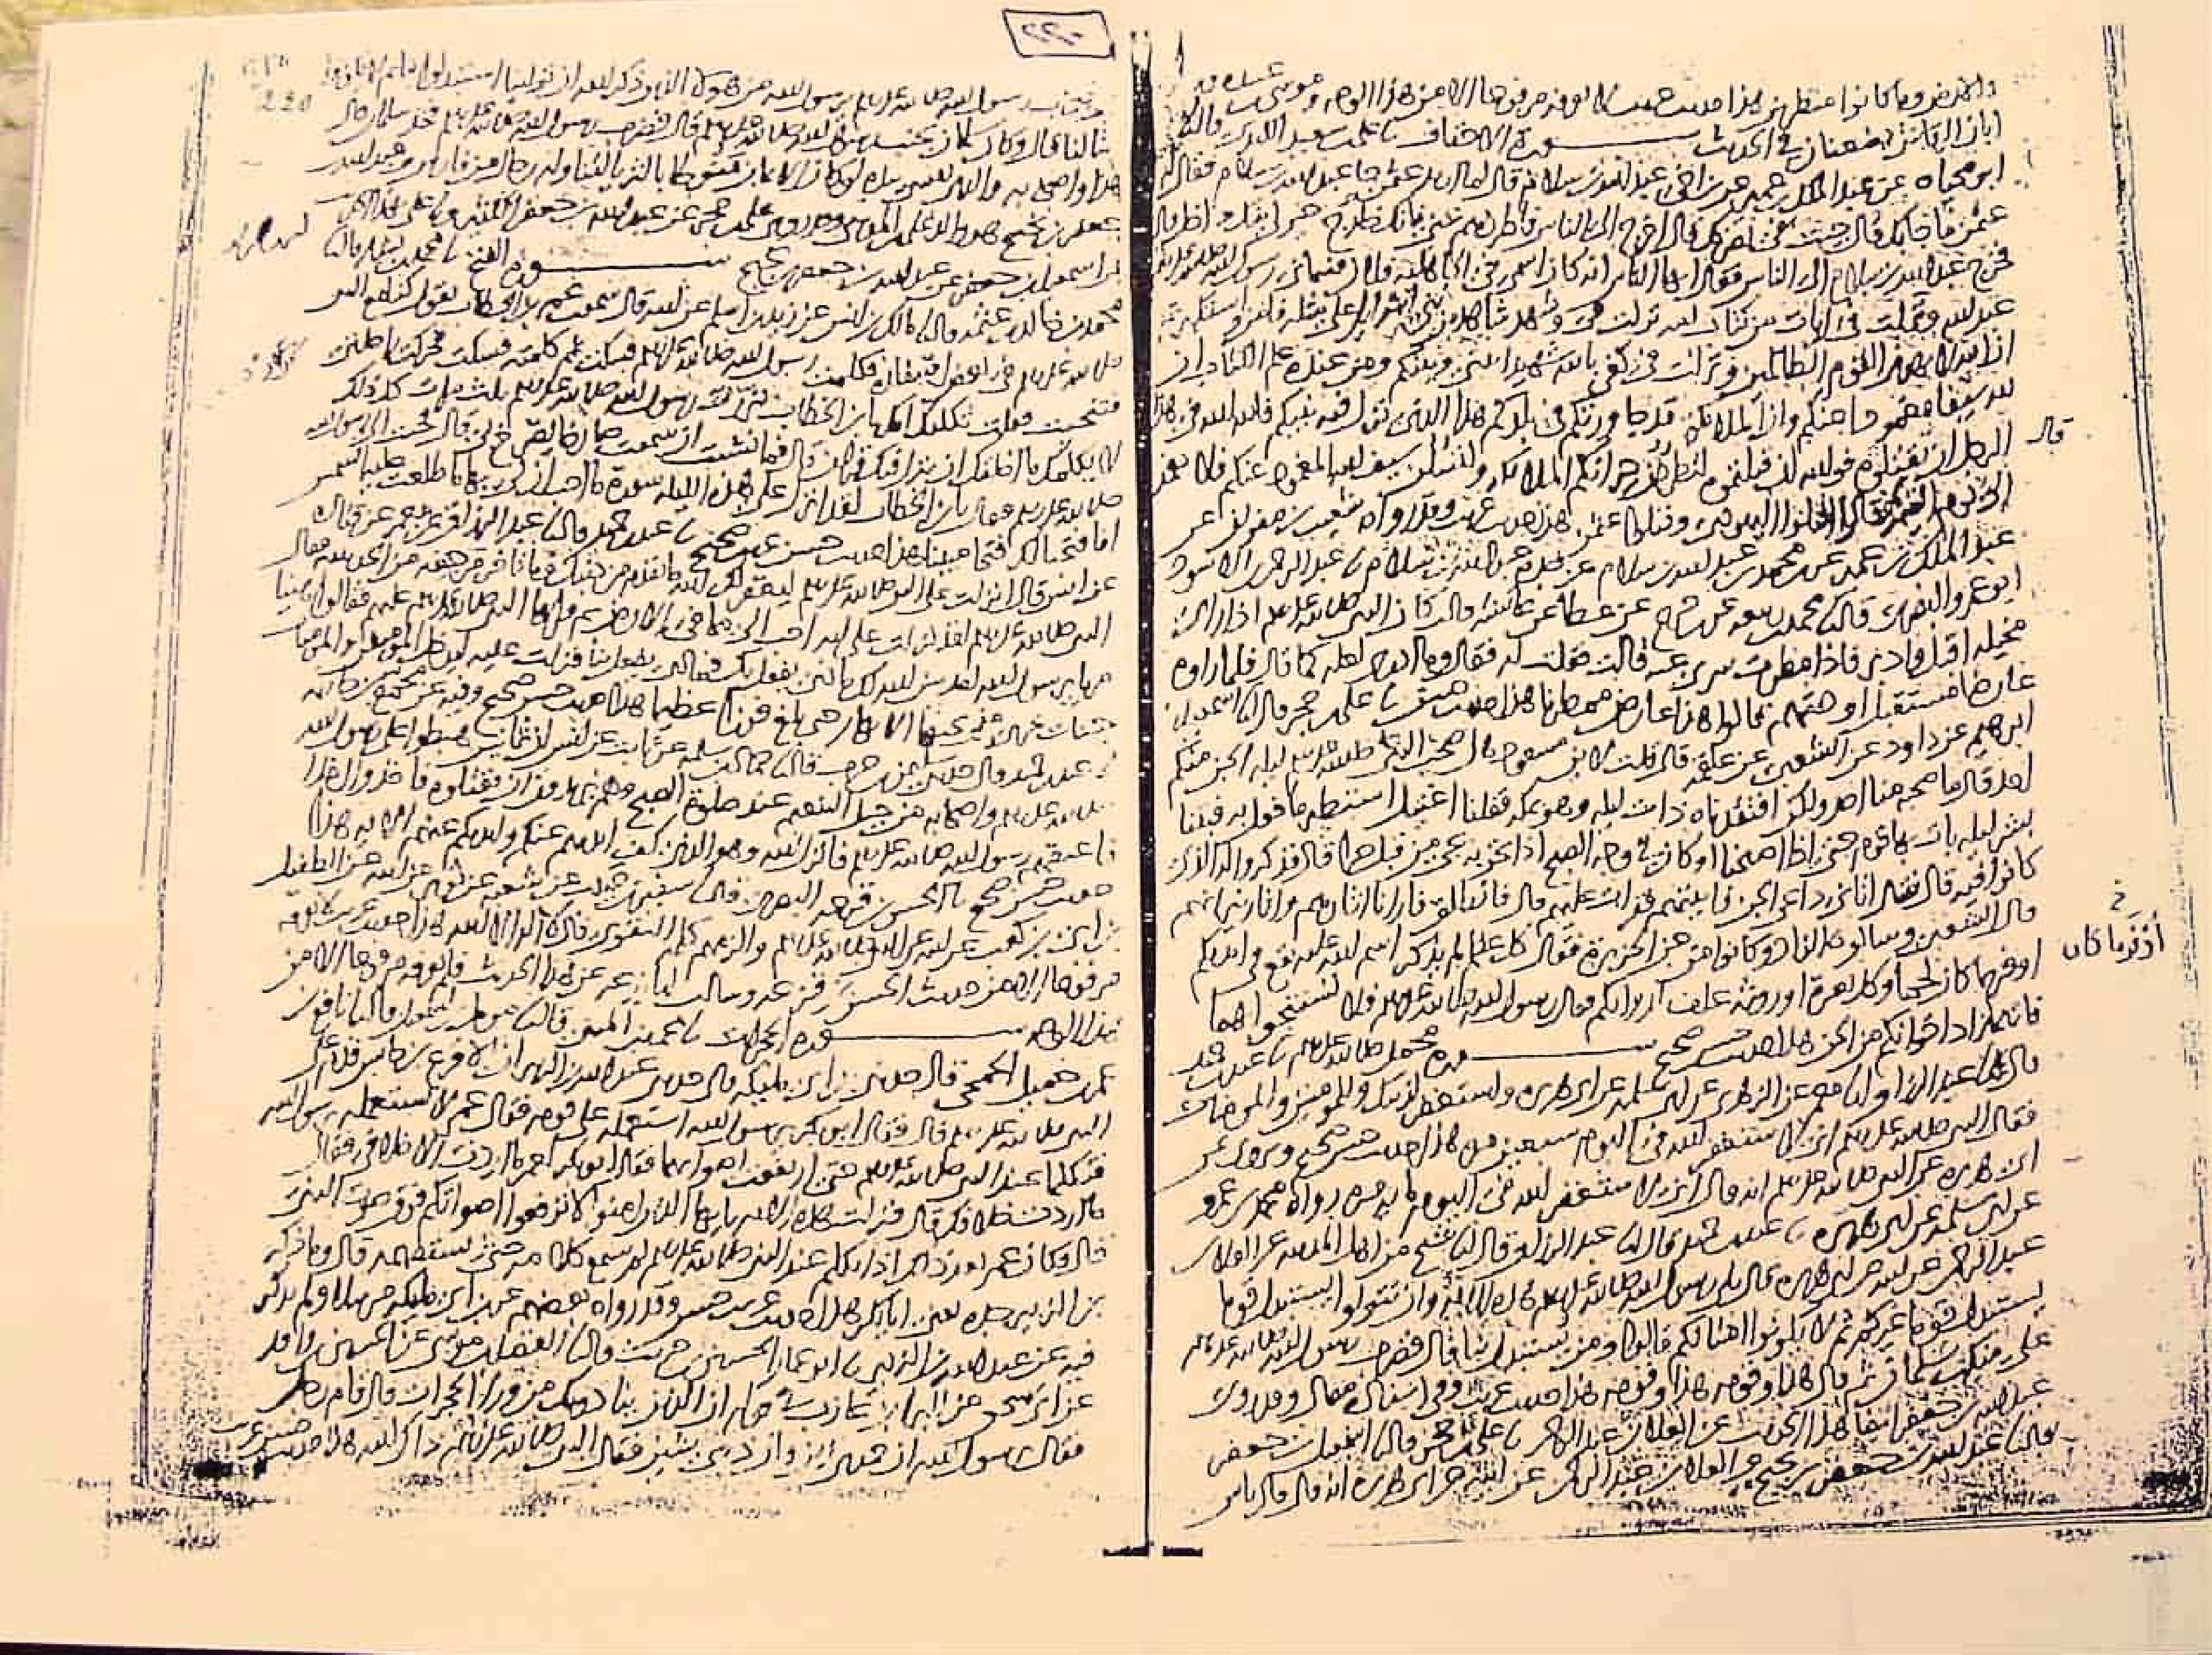 والارض وما كانوا منظرين هذا حديث غريب لا نعرفه مرفوعا الا من هذا الوجه وموسى بن عبيدة و
ابان الرقاشي يضعفان في الحديث سورة الاحقاف نا علي بن سعيد الكندي قال نا
ابو محياه عن عبد الملك بن عمير عن ابن اخي عبد الله بن سلام قال لما اريد عثمن جا عبد الله بن سلام فقال له
عثمن ما جا بك قال جئت في نصرك قال اخرج الى الناس فاطردهم عني فانك خارج خير لي منك داخل قال
فخرج عبد الله بن سلام الى الناس فقال ايها الناس انه كان اسمي في الجاهلية فلان فسماني رسول الله صلى الله عليه
عبد الله ونزلت في ايات من كتاب الله نزلت في وشهد شاهد من بني اسرايل على مثله فامن واستكبرتم
ان الله لا يهدي القوم الظالمين ونزلت في كفى بالله شهيدا بيني وبينكم ومن عنده علم الكتاب ان
لله سيفا مغمودا عنكم وان الملائكة قد جاورتكم في بلدكم هذا الذي نزل فيه نبيكم فالله الله في هذا
الرجل ان تقتلوه فوالله لئن قتلتموه لتطردن جيرانكم الملائكة ولتسلن سيف الله المغمود عنكم فلا يغمد
قال
الى يوم القيمة قالوا اقتلوا اليهودي وقتلوا عثمن هذا حديث غريب وقد رواه شعيب بن صفوان عن
عبد الملك بن عمير عن محمد بن عبد الله بن سلام عن جده عبد الله بن سلام نا عبد الرحمن بن الاسود
ابو عمرو البصري قال نا محمد بن ربيعة عن ابن جريج عن عطا عن عائشة قالت كان النبي صلى الله عليه وسلم اذا راى
مخيلة اقبل وادبر فاذا مطرت سري عنه قالت فقلت له فقال وما ادري لعله كما قال فلما راوه
عارضا مستقبل اوديتهم قالوا هذا عارض ممطرنا هذا حديث حسن نا علي بن حجر قال نا اسمعيل بن
ابرهيم عن داود عن الشعبي عن علقمة قال قلت لابن مسعود هل صحب النبي صلى الله عليه وسلم ليلة الجن منكم
احد قال ما صحبه منا احد ولكن افتقدناه ذات ليلة وهو بمكة فقلنا اغتيل استطير ما فعل به فبتنا
بشر ليلة بات بها قوم حتى اذا اصبحنا او كان في وجه الصبح اذا نحن به يجي من قبل حرا قال فذكروا له الذي
كانوا فيه قال فقال اتاني داعي الجن فاتيتهم فقرات عليهم قال فانطلق فارانا اثارهم واثار نيرانهم
قال الشعبي وسالوه الزاد وكانوا من جن الجزيرة فقال كل عظم لم يذكر اسم الله عليه يقع في ايديكم
اوفر ما كان لحما وكل بعرة او روثة علف لدوابكم فقال رسول الله صلى الله عليه وسلم فلا تستنجوا بهما
أوفر ما كان
فانهما زاد اخوانكم من الجن هذا حديث حسن صحيح سورة محمد صلى الله عليه وسلم نا عبد بن حميد
قال نا عبد الرزاق انا معمر عن الزهري عن ابي سلمة عن ابي هريرة واستغفر لذنبك وللمومنين والمومنات
فقال النبي صلى الله عليه وسلم اني لاستغفر الله في اليوم سبعين مرة هذا حديث حسن صحيح ويروى عن
ابي هريرة عن النبي صلى الله عليه وسلم انه قال اني لاستغفر الله في اليوم ماية مرة رواه محمد بن عمرو
عن ابي سلمة عن ابي هريرة نا عبد بن حميد قال نا عبد الرزاق قال نا شيخ من اهل المدينة عن العلا بن
عبد الرحمن عن ابيه عن ابي هريرة قال تلا رسول الله صلى الله عليه وسلم هذه الاية وان تتولوا يستبدل قوما
يستبدل قوما غيركم ثم لا يكونوا امثالكم قالوا ومن يستبدل بنا قال فضرب رسول الله صلى الله عليه وسلم
على منكب سلمان ثم قال هذا وقومه هذا وقومه هذا حديث غريب وفي اسناده مقال وقد روى
عبد الله بن جعفر ايضا هذا الحديث عن العلا بن عبد الرحمن نا علي بن حجر قال نا اسمعيل بن جعفر
قال نا عبد الله بن جعفر بن نجيح عن العلا بن عبد الرحمن عن ابيه عن ابي هريرة انه قال قال ناس
٢٢٠
220
من اصحاب رسول الله صلى الله عليه وسلم يرسول الله من هولا الذين ذكر الله ان تولينا استبدلوا بنا ثم لم يكونوا
امثالنا قال وكان سلمان بجنب رسول الله صلى الله عليه وسلم قال فضرب رسول الله صلى الله عليه وسلم فخذ سلمان قال
هذا واصحابه والذي نفسي بيده لو كان الايمان منوطا بالثريا لتناوله رجال من فارس وعبد الله بن
جعفر بن نجيح هو والد علي بن المديني وقد روى علي بن حجر عن عبد الله بن جعفر الكثير ونا علي بهذا الحديث
عن اسمعيل بن جعفر عن عبد الله بن جعفر بن نجيح سورة الفتح نا محمد بن بشار قال نا
محمد بن خالد بن عثمة قال نا مالك بن انس عن زيد بن اسلم عن ابيه قال سمعت عمر بن الخطاب يقول كنا مع النبي
صلى الله عليه وسلم في بعض اسفاره فكلمت رسول الله صلى الله عليه وسلم فسكت ثم كلمته فسكت فحركت راحلتي
فتنحيت فقلت ثكلتك امك يا بن الخطاب نزرت رسول الله صلى الله عليه وسلم ثلث مرات كل ذلك
لا يكلمك ما اخلقك ان ينزل فيك قران قال فما نشبت ان سمعت صارخا يصرخ بي قال فجئت الى رسول الله
صلى الله عليه وسلم فقال يا بن الخطاب لقد انزل علي هذه الليلة سورة ما احب ان لي بها ما طلعت عليه الشمس
انا فتحنا لك فتحا مبينا هذا حديث حسن غريب صحيح نا عبد بن حميد قال نا عبد الرزاق عن معمر عن قتادة
عن انس قال انزلت على النبي صلى الله عليه وسلم ليغفر لك الله ما تقدم من ذنبك وما تاخر مرجعه من الحديبية فقال
النبي صلى الله عليه وسلم لقد نزلت علي اية احب الي مما على الارض ثم قراها النبي صلى الله عليه وسلم عليهم فقالوا هنيا
مريا يرسول الله لقد بين الله لك ماذا يفعل بك فماذا يفعل بنا فنزلت عليه ليدخل المومنين والمومنات
جنات تجري من تحتها الانهار حتى بلغ فوزا عظيما هذا حديث حسن صحيح وفيه عن مجمع بن جارية
نا عبد بن حميد قال حدثني سليمن بن حرب قال نا حماد بن سلمة عن ثابت عن انس ان ثمانين هبطوا على رسول الله
صلى الله عليه وسلم واصحابه من جبل التنعيم عند صلوة الصبح وهم يريدون ان يقتلوه فاخذوا اخذا
فاعتقهم رسول الله صلى الله عليه وسلم فانزل الله وهو الذي كف ايديهم عنكم وايديكم عنهم الاية هذا
حديث حسن صحيح نا الحسن بن قزعة البصري قال نا سفين بن حبيب عن شعبة عن ثوير عن ابيه عن الطفيل
بن ابي بن كعب عن ابيه عن النبي صلى الله عليه وسلم والزمهم كلمة التقوى قال لا اله الا الله هذا حديث غريب لا نعرفه
مرفوعا الا من حديث الحسن بن قزعة وسالت ابا زرعة عن هذا الحديث فلم يعرفه مرفوعا الا من
هذا الوجه سورة الحجرات نا محمد بن المثنى قال نا مومل بن اسمعيل قال نا نافع بن
عمر بن جميل الجمحي قال حدثني ابن ابي مليكة قال حدثني عبد الله بن الزبير ان الاقرع بن حابس قدم على
النبي صلى الله عليه وسلم قال فقال ابو بكر يرسول الله استعمله على قومه فقال عمر لا تستعمله يرسول الله
فتكلما عند النبي صلى الله عليه وسلم حتى ارتفعت اصواتهما فقال ابو بكر لعمر ما اردت الا خلافي فقال
ما اردت خلافك قال فنزلت هذه الاية يايها الذين امنوا لا ترفعوا اصواتكم فوق صوت النبي
قال وكان عمر بعد ذلك اذا تكلم عند النبي صلى الله عليه وسلم لم يسمع كلامه حتى يستفهمه قال وما ذكر
بن الزبير جده يعني ابا بكر هذا حديث غريب حسن وقد رواه بعضهم عن ابن ابي مليكة مرسلا ولم يذكر
فيه عن عبد الله بن الزبير نا ابو عمار الحسين بن حريث قال نا الفضل بن موسى عن الحسين بن واقد
عن ابي اسحق عن البرا بن عازب في قوله ان الذين ينادونك من ورا الحجرات قال قام رجل
فقال يرسول الله ان حمدي زين وان ذمي شين فقال النبي صلى الله عليه وسلم ذاك الله هذا حديث حسن غريب